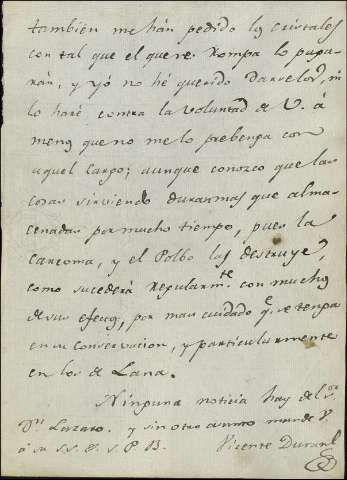 también me hán pedido los cristales
con tal que el que se rompa lo paga-
rán, y yó no hé querido darselos, ni
lo haré contra la voluntad de V. á
menos que no me lo prebenga con
aquel cargo; aunque conozco que las
cosas sirviendo duran mas que alma-
cenadas por mucho tiempo, pues la
carcoma, y el Polbo las destruye,
como sucederá regularmte. con muchos
de sus efectos, por mas cuidado qe. se tenga
en su conservacion, y particularmente
en los de Lana.
Ninguna noticia hay del Sor.
Dn. Lazaro. y sin otro asunto mande V.
á su S. S. Q. S. M. B.
Vicente Duran